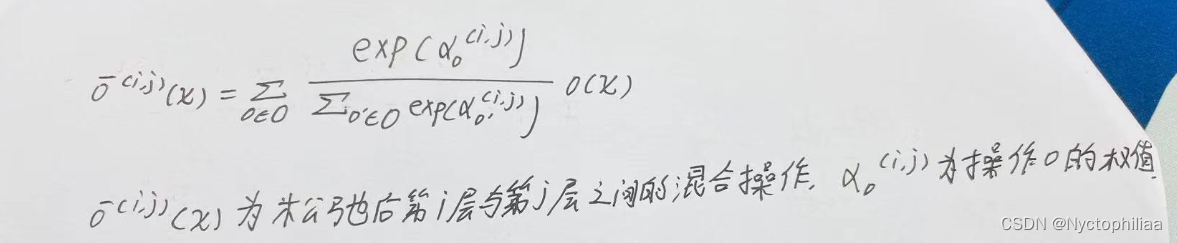 ō^(i,j)(x) = Σ_{o∈O} exp(α_o^(i,j)) / Σ_{o'∈O} exp(α_{o'}^(i,j)) o(x)
ō^(i,j)(x) 为松弛后第i层与第j层之间的混合操作, α_o^(i,j) 为操作o的权值
CSDN @Nyctophiliaa